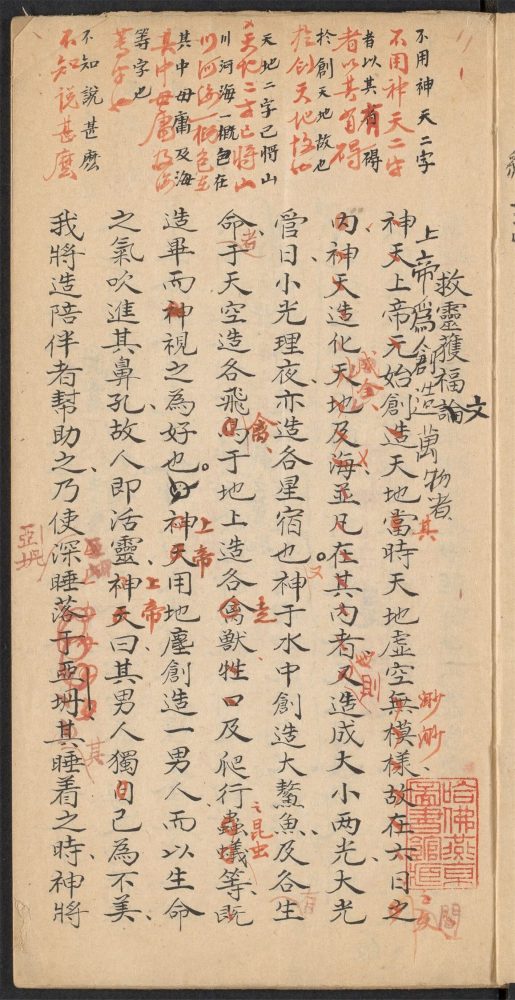 不用神天二字
不用神天二字
者以其有碍
者以其有碍
於創天地故也
於創天地故也
天地二字已將山
天地二字已將山
川河海一概包在
川河海一概包在
其中毋庸及海
其中毋庸及海
等字也
等字也
不知說甚麽
不知說甚麽
救靈獲福論文
上帝爲創造萬物者
神天上帝元始創造天地當時天地虛空無模樣故在六日之
其
渺渺
内神天造化天地及海並凡在其內者又造成大小两光大光
成全
則
管日小光理夜亦造各星宿也神于水中創造大鰲魚及各生
又
命于天空造各飛鳥于地上造各禽獸牲口及爬行蟲蟻等既
者
禽
走
昆虫
造畢而神視之為好也神天用地塵創造一男人而以生命
上帝
之氣吹進其鼻孔故人即活靈神天曰其男人獨自己為不美
上帝
我將造陪伴者幫助之乃使深睡落于亞坍其睡着之時神將
其
亞坍
哈佛燕京
圖書館